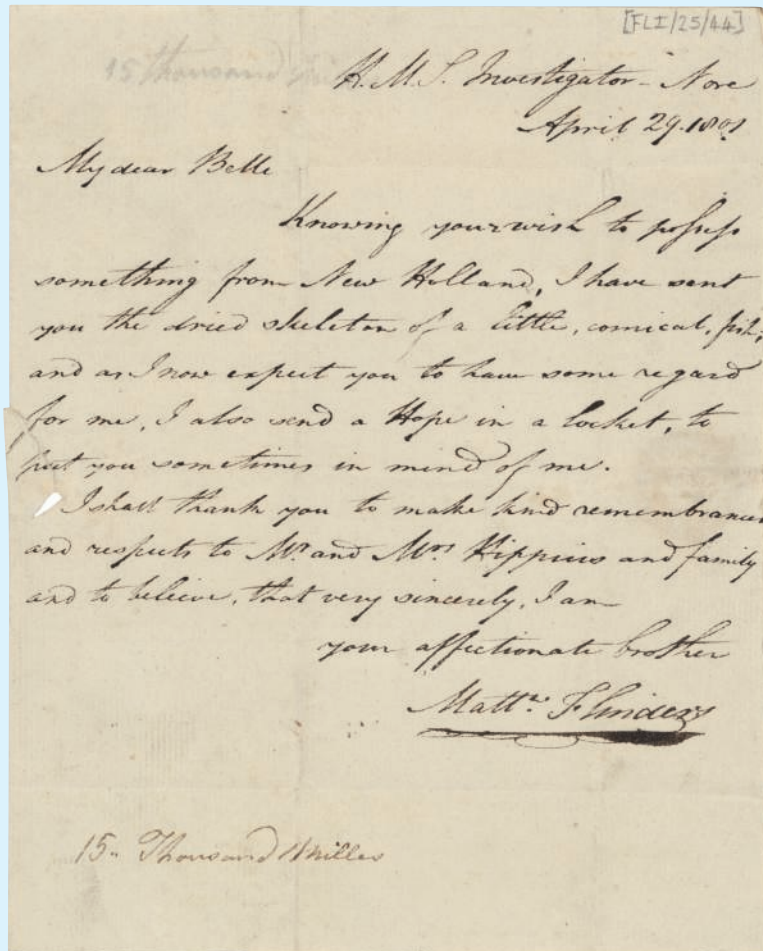 [FLI/25/44]
15 thousand
H.M.S. Investigator - Nore
April 29. 1801
My dear Belle
Knowing your wish to possess
something from New Holland, I have sent
you the dried skeleton of a little, comical, fish;
and as I now expect you to have some regard
for me, I also send a Hope in a locket, to
put you sometimes in mind of me.
I shall thank you to make kind remembrances
and respects to Mr. and Mrs. Hippius and family
and to believe, that very sincerely, I am
your affectionate brother
Mattw. Flinders
15 Thousand Milles